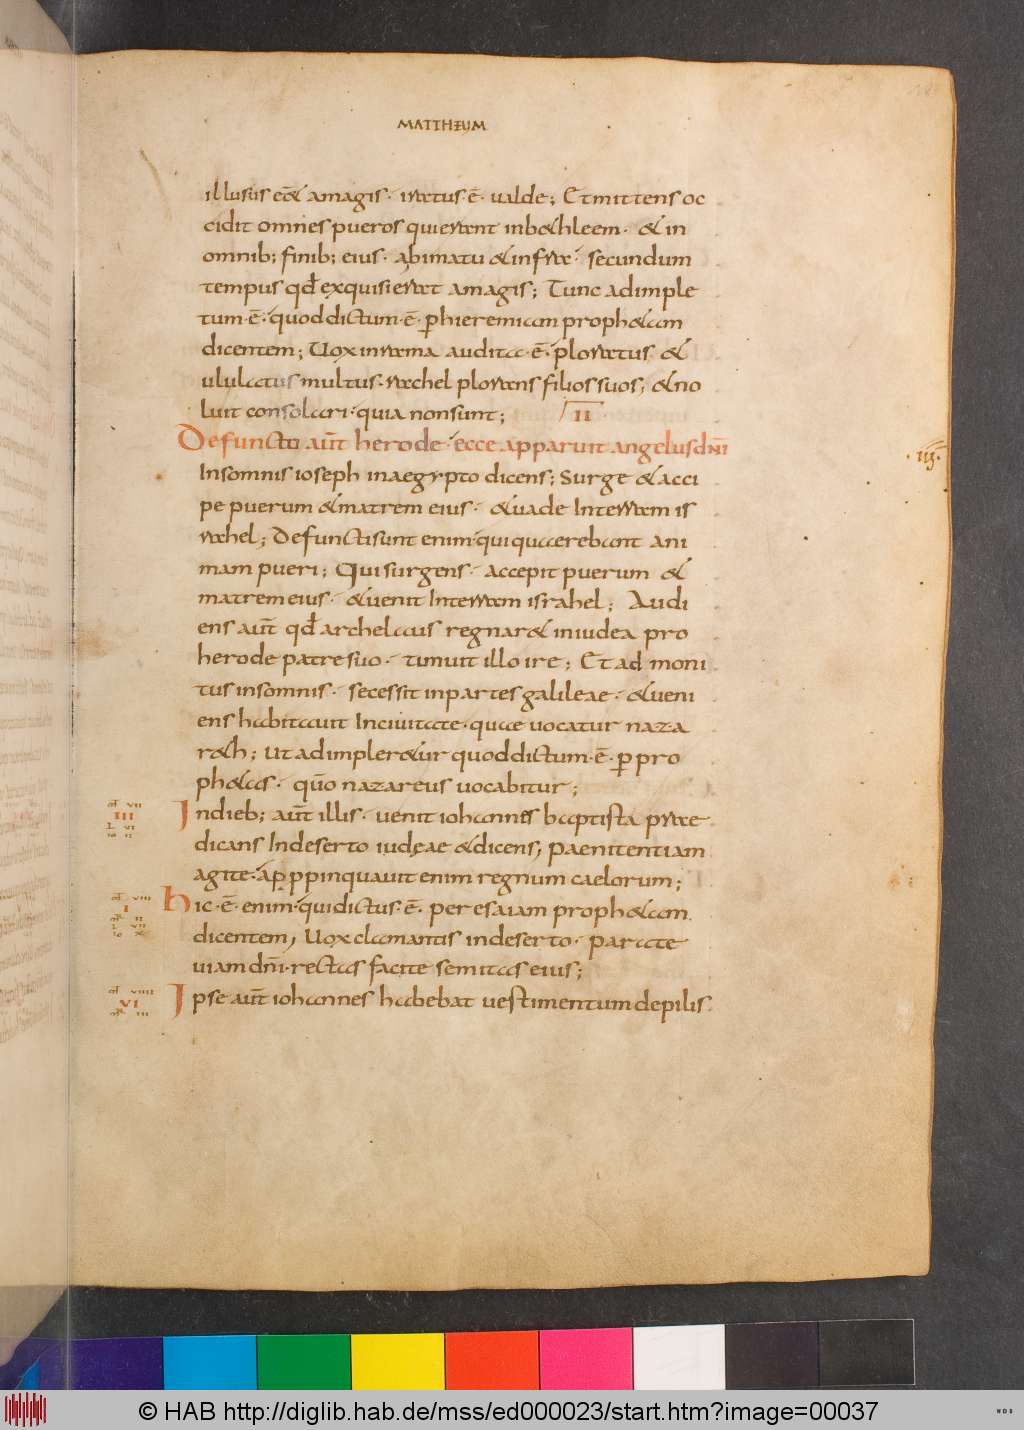 MATTHEUM
illusus eēt amagis · iratus · ē · ualde ; Et mittens oc
cidit omnes pueros quierant inbethleem · et in
omnib; finib; eius · abimatu et infra · secundum
tempus qđ exquisierat amagis ; Tunc adimple
tum · ē · quod dictum · ē · p hieremiam prophetam
dicentem ; Uox inrama audita · ē · ploratus et
ululatus multus · rachel plorans filios suos ; et no
luit consolari · quia non sunt ; II
Defuncto aūt herode · ecce apparuit angelus dn̄i
Insomnis ioseph in aegypto dicens ; Surge et acci
pe puerum et matrem eius · et uade Interram is
rahel ; Defuncti sunt enim · qui quaerebant ani
mam pueri ; Qui surgens · accepit puerum et
matrem eius · et uenit Interram israhel ; Audi
ens aūt qđ archelaus regnaret in iudea pro
herode patre suo · timuit illo ire ; Et ad moni
tus insomnis · secessit in partes galileae · et ueni
ens habitauit Inciuitate · quae uocatur naza
reth ; Ut ad impleretur quod dictum · ē · p pro
phetas · qūo nazareus uocabitur ;
In dieb; aūt illis · uenit iohannes baptista prae
dicans In deserto iudęae et dicens ; paenitentiam
agite · ap ppinquauit enim regnum caelorum ;
hic · ē · enim · qui dictus · ē · per esaiam prophetam
dicentem ; Uox clamantis in deserto · parate
uiam dn̄i · rectas facite semitas eius ;
Ipse aūt iohannes habebat uestimentum de pilis
·iiii·
VII
III
VI
II
VIII
I
II
VII
X
VIIII
VI
III
© HAB http://diglib.hab.de/mss/ed000023/start.htm?image=00037